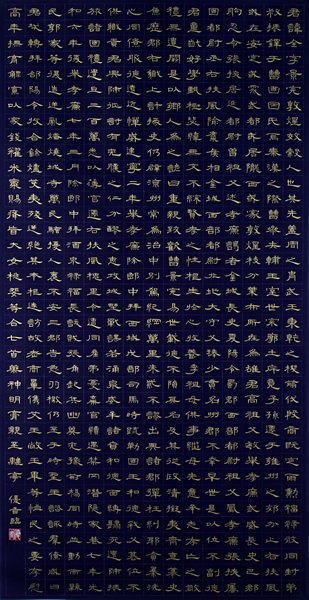 君諱全字景完敦煌效穀人也其先蓋周之冑武王秉乾之機翦伐殷商既定爾勳福祿攸同封弟
叔振鐸于曹國因氏焉秦漢之際曹參夾輔王室世宗廓土斥竟子孫遷于雍州之郊分止右扶風
或在安定或處武都或居隴西或家敦煌枝分葉布所在為雄君高祖父敏舉孝廉武威長史巴郡
朐忍令張掖居延都尉曾祖父述孝廉謁者金城長史夏陽令蜀郡西部都尉祖父鳳孝廉張掖屬
國都尉丞右扶風隃麋侯相金城西部都尉北地大守父琫少貫名州郡不幸早世是以位不副德
君童齔好學甄極毖緯無文不綜賢孝之性根生於心收養季祖母供事繼母先意承志存亡之敬
禮無遺闕是以鄉人為之諺曰重親致歡曹景完易世載德不隕其名及其從政清擬夷齊直慕史
魚歷郡右職上計掾史仍辟涼州常為治中別駕紀綱萬里朱紫不謬出典諸郡彈枉糾邪貪暴洗
心同僚服德遠近憚威建寧二年舉孝廉除郎中拜西域戊部司馬時疏勒國王和德弒父篡位不供
職貢君興師征討有吮膿之仁分醪之惠攻城野戰謀若涌泉威牟諸賁和德面縛歸死還師振
旅諸國禮遺且二百萬悉以簿官遷右扶風槐里令遭同產弟憂棄官續遇禁網潛隱家巷七年光
和六年復舉孝廉七年三月除郎中拜酒泉祿福長訞賊張角起兵幽冀兗豫荊楊同時並動而縣
民郭家等復造逆亂燔燒城寺萬民騷擾人裹不安三郡告急羽檄仍至于時聖主諮諏群僚咸曰
君哉轉拜郃陽令收合餘燼芟夷殘迸絕其本根遂訪故老商量儁艾王敞王畢等恤民之要存慰
高年撫育鰥寡以家錢糴米粟賜癃盲大女桃斐等合七首藥神明膏親至離亭